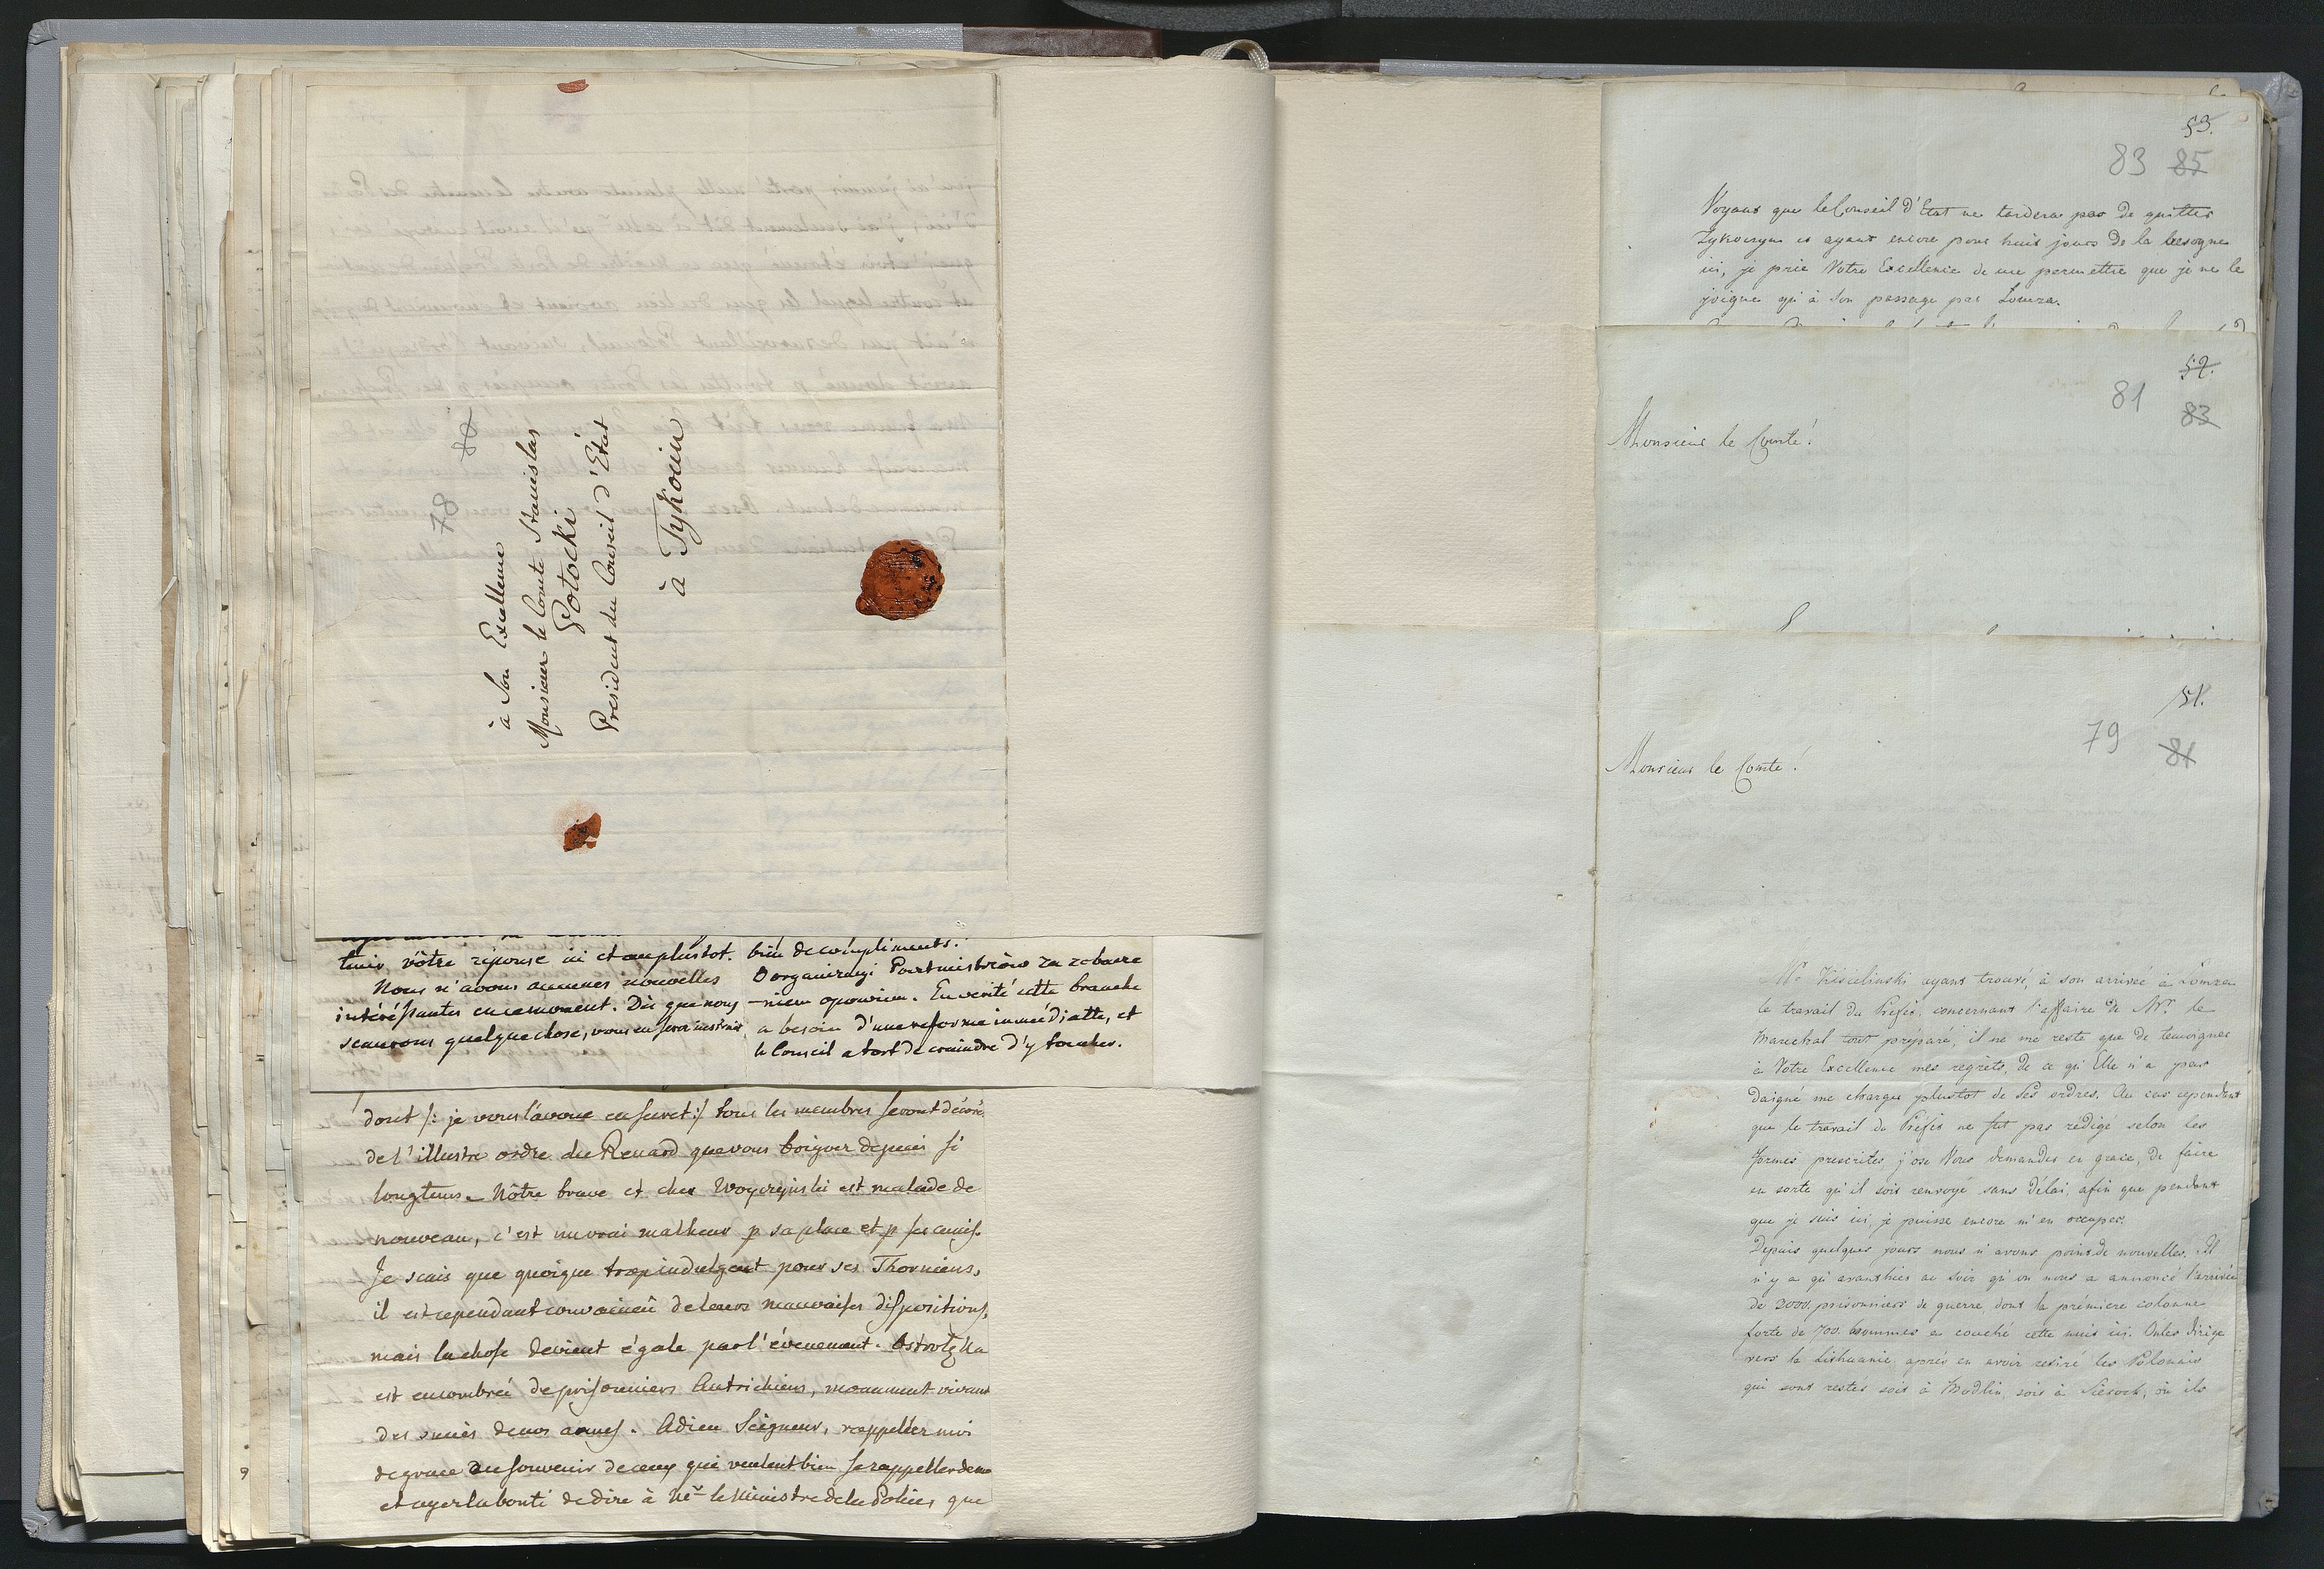 80
78
à Son Excellence
Monsieur le Comte Stanislas
Potocki
President du Conseil d'Etat
à Tykocin
tenir vôtre réponse ici et au plustot.
Nous n'avons aucunes nouvelles
intéréssantes en ce moment. Dès que nous
scaurons quelque chose, vous en serez instruit
bien de compliments.
O organizacyi Poctmistrzów za zebra
niem opowiem. En verité cette branche
a besoin d'une reforme immédiatte, et
le Conseil a tort de craindre d'y toucher.
dont /: je vous l'avoue en secret :/ tous les membres seront décoré
de l'illustre ordre du Renard que vous briguez depuis si
longtems. Nôtre brave et cher Woyczyński est malade de
nouveau, c'est un vrai malheur p sa place et p ses amis.
Je scais que quoique trop indulgent pour ses Thorniens,
il est cependant convaincu de leurs mauvaises dispositions,
mais la chose devient égale par l'évenement. Ostrołęka
est encombrée de prisonniers Autrichiens, monument vivant
des succès de nos armes. Adieu Seigneur, rappellez moi
de grace au souvenir de ceux qui veulent bien se rappeller de moi
et ayez la bonté de dire à Mr le Ministre de la Police, que
9
53.
83 85
Voyant que le Conseil d'Etat ne tardera pas de quitter
Tykoczyn et ayant encore pour huit jours de la besogne
ici, je prie Votre Excellence de me permettre que je ne le
joigne qu'à Son passage par Lomza.
52.
81
83
Monsieur le Comte!
51.
79
81
Monsieur le Comte!
Mr Kisielinski ayant trouvé, à son arrivée à Lomza
le travail du Préfet, concernant l'affaire de Mr. le
Marechal tout préparé, il ne me reste que de temoigner
à Votre Excellence mes regrèts, de ce qu'Elle n'a pas
daigné me charger plustot de Ses ordres. Au cas cependant
que le travail du Préfet ne fut pas rédigé selon les
formes prescrites, j'ose Vous demander en grace, de faire
en sorte qu'il soit renvoyé sans délai, afin que pendant
que je suis ici, je puisse encore m'en occuper.
Depuis quelques jours nous n'avons point de nouvelles. Il
n'y a qu'avanthier au soir qu'on nous a annoncé l'arrivée
de 2000. prisonniers de guerre, dont la prémiere colonne
forte de 700. hommes a couché cette nuit ici. On les dirige
vers la Lithuanie, après en avoir retiré les Polonais
qui sont restés soit à Modlin, soit à Sierock, où ils